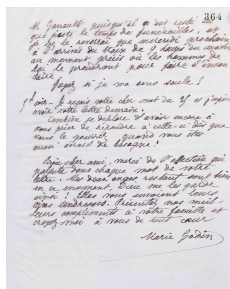 364
M. Jannolle, puisqu'il n'est resté
que juste le temps des funérailles, et
je ne le reverrai que mercredi prochain
à l'arrivée du train de 9 heures du matin
au moment précis où les hommes de
loi le prendront pour faire l'inven
taire.
Jugez si je me sens seule !
5h soir. Je reçois votre cher mot du 25 et j'espère
avoir votre lettre demain.
Combien je déplore d'avoir encore à
vous prier de répondre à celle-ci dès que
vous le pourrez, quand vous êtes
aussi écrasé de besogne !
Bien cher ami, merci de l'affection qui
palpite dans chaque mot de votre
lettre. Mes deux anges restent bien
en ce moment, Dieu me les garde
ainsi ! Elles vous envoient leurs
tendresses. Présentez nos meil-
leurs compliments à votre famille et
croyez-moi à vous de tout cœur
Marie Godin